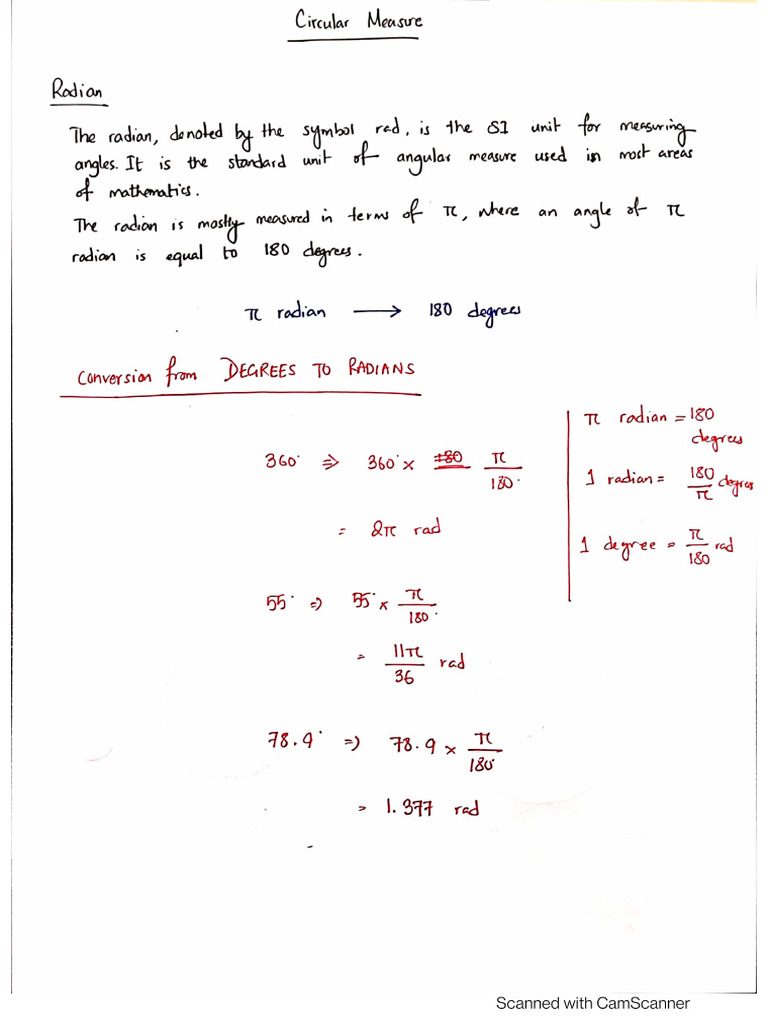 Circular Measure
Radian
The radian, denoted by the symbol rad, is the SI unit for measuring
angles. It is the standard unit of angular measure used in most areas
of mathematics.
The radian is mostly measured in terms of π, where an angle of π
radian is equal to 180 degrees.
π radian ⟶ 180 degrees
Conversion from DEGREES TO RADIANS
360° ⇒ 360° × π/180°
= 2π rad
55° ⇒ 55° × π/180°
= 11π/36 rad
78.9° ⇒ 78.9 × π/180°
= 1.377 rad
π radian = 180
degrees
1 radian = 180/π degrees
1 degree = π/180 rad
Scanned with CamScanner